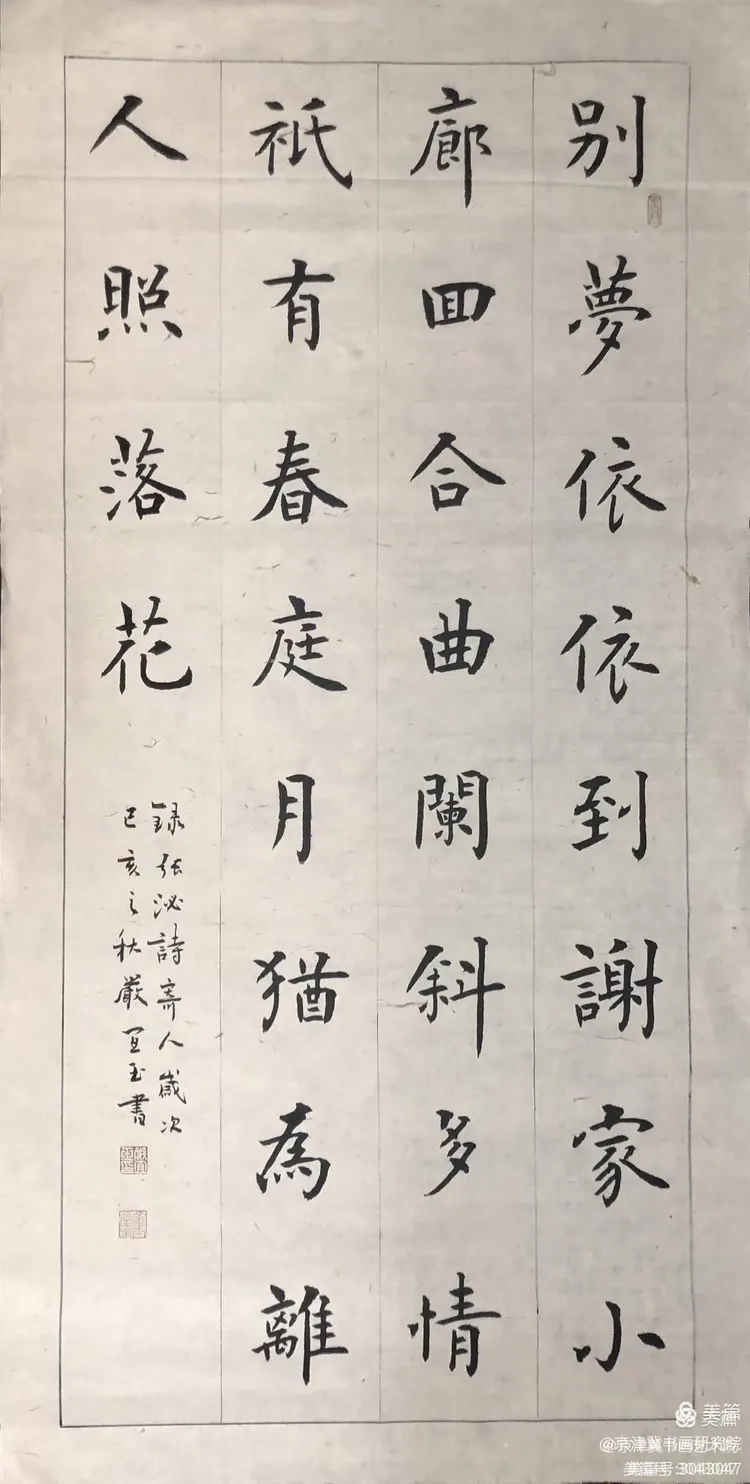 别夢依依到謝家小
廊囬合曲闌斜多情
祇有春庭月猶為離
人照落花
録張泌詩寄人歲次
己亥之秋嚴宜玉書
美篇
@京津冀书画艺术院
美篇号:3043047